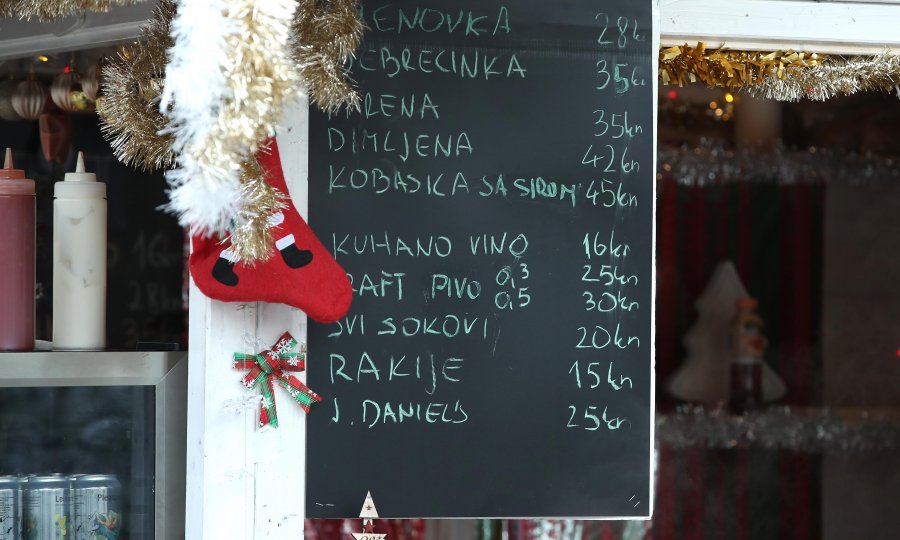 RENOVKA 28k
DEBRECINKA 35kn
ARENA 35kn
DIMLJENA 42kn
KOBASICA SA SIROM 45kn
KUHANO VINO 16kn
RAFT PIVO 0,3 25kn
0,5 30kn
SVI SOKOVI 20kn
RAKIJE 15kn
J. DANIEL'S 25kn